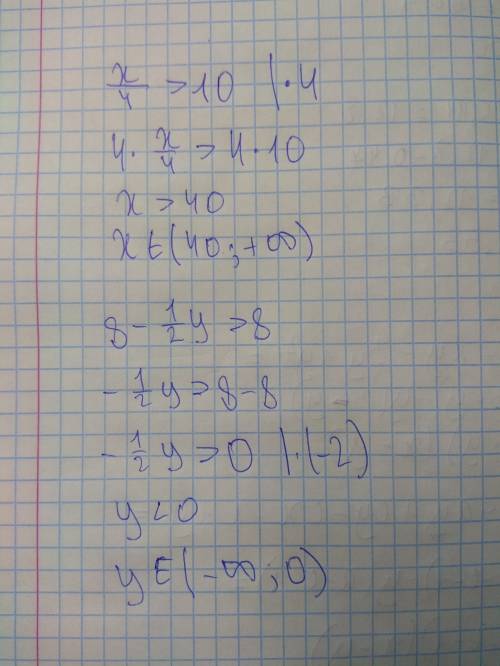 x/4 > 10 | · 4
4 · x/4 > 4 · 10
x > 40
x ∈ (40 ; +∞)
8 - 1/2 y > 8
- 1/2 y > 8 - 8
- 1/2 y > 0 | · (-2)
y < 0
y ∈ (-∞ ; 0)